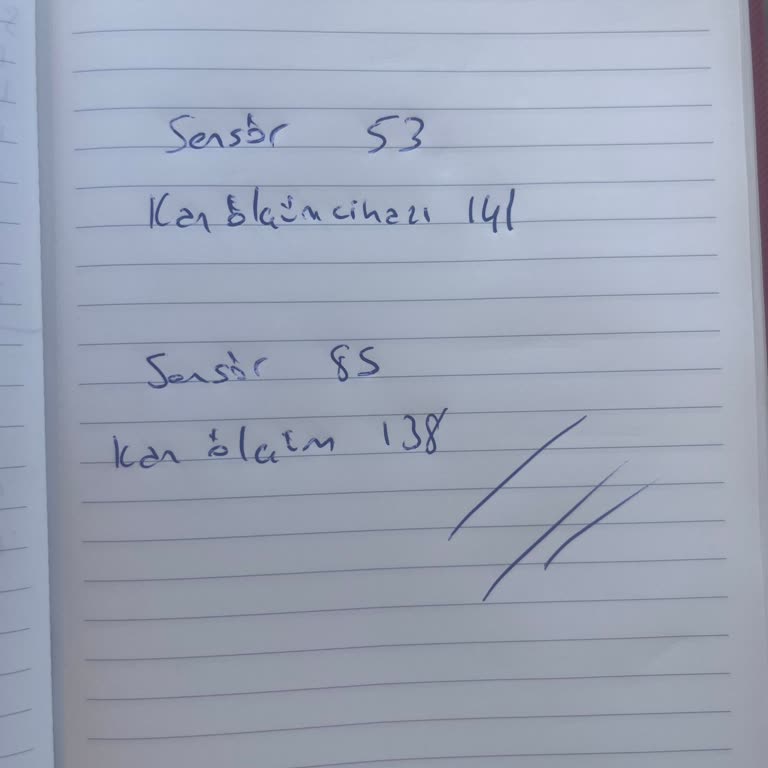 Sensör 53
Kan ölçüm cihazı 141
Sensör 85
Kan ölçüm 138